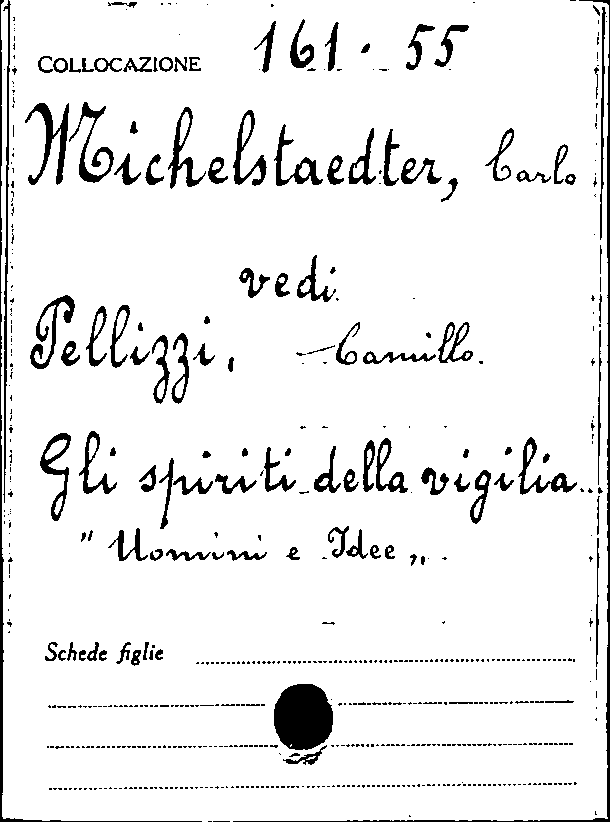 COLLOCAZIONE 161 · 55
Michelstaedter, Carlo
vedi
Pellizzi, Camillo.
Gli spiriti della vigilia...
" Uomini e Idee „.
Schede figlie